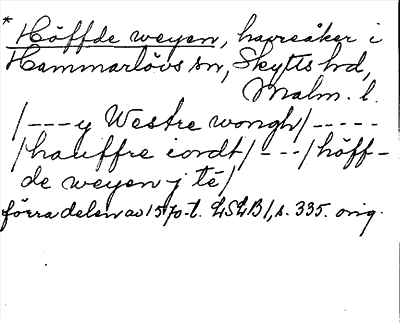 * Höffde weyen, havreåker i
Hammarlövs sn, Skytts hd,
Malm. l.
/---y Westre wongh/-----
/hauffre iordt/---/höff-
de weyen j té/
förra delen av 1570-t. LSLB 1, s. 335. orig.